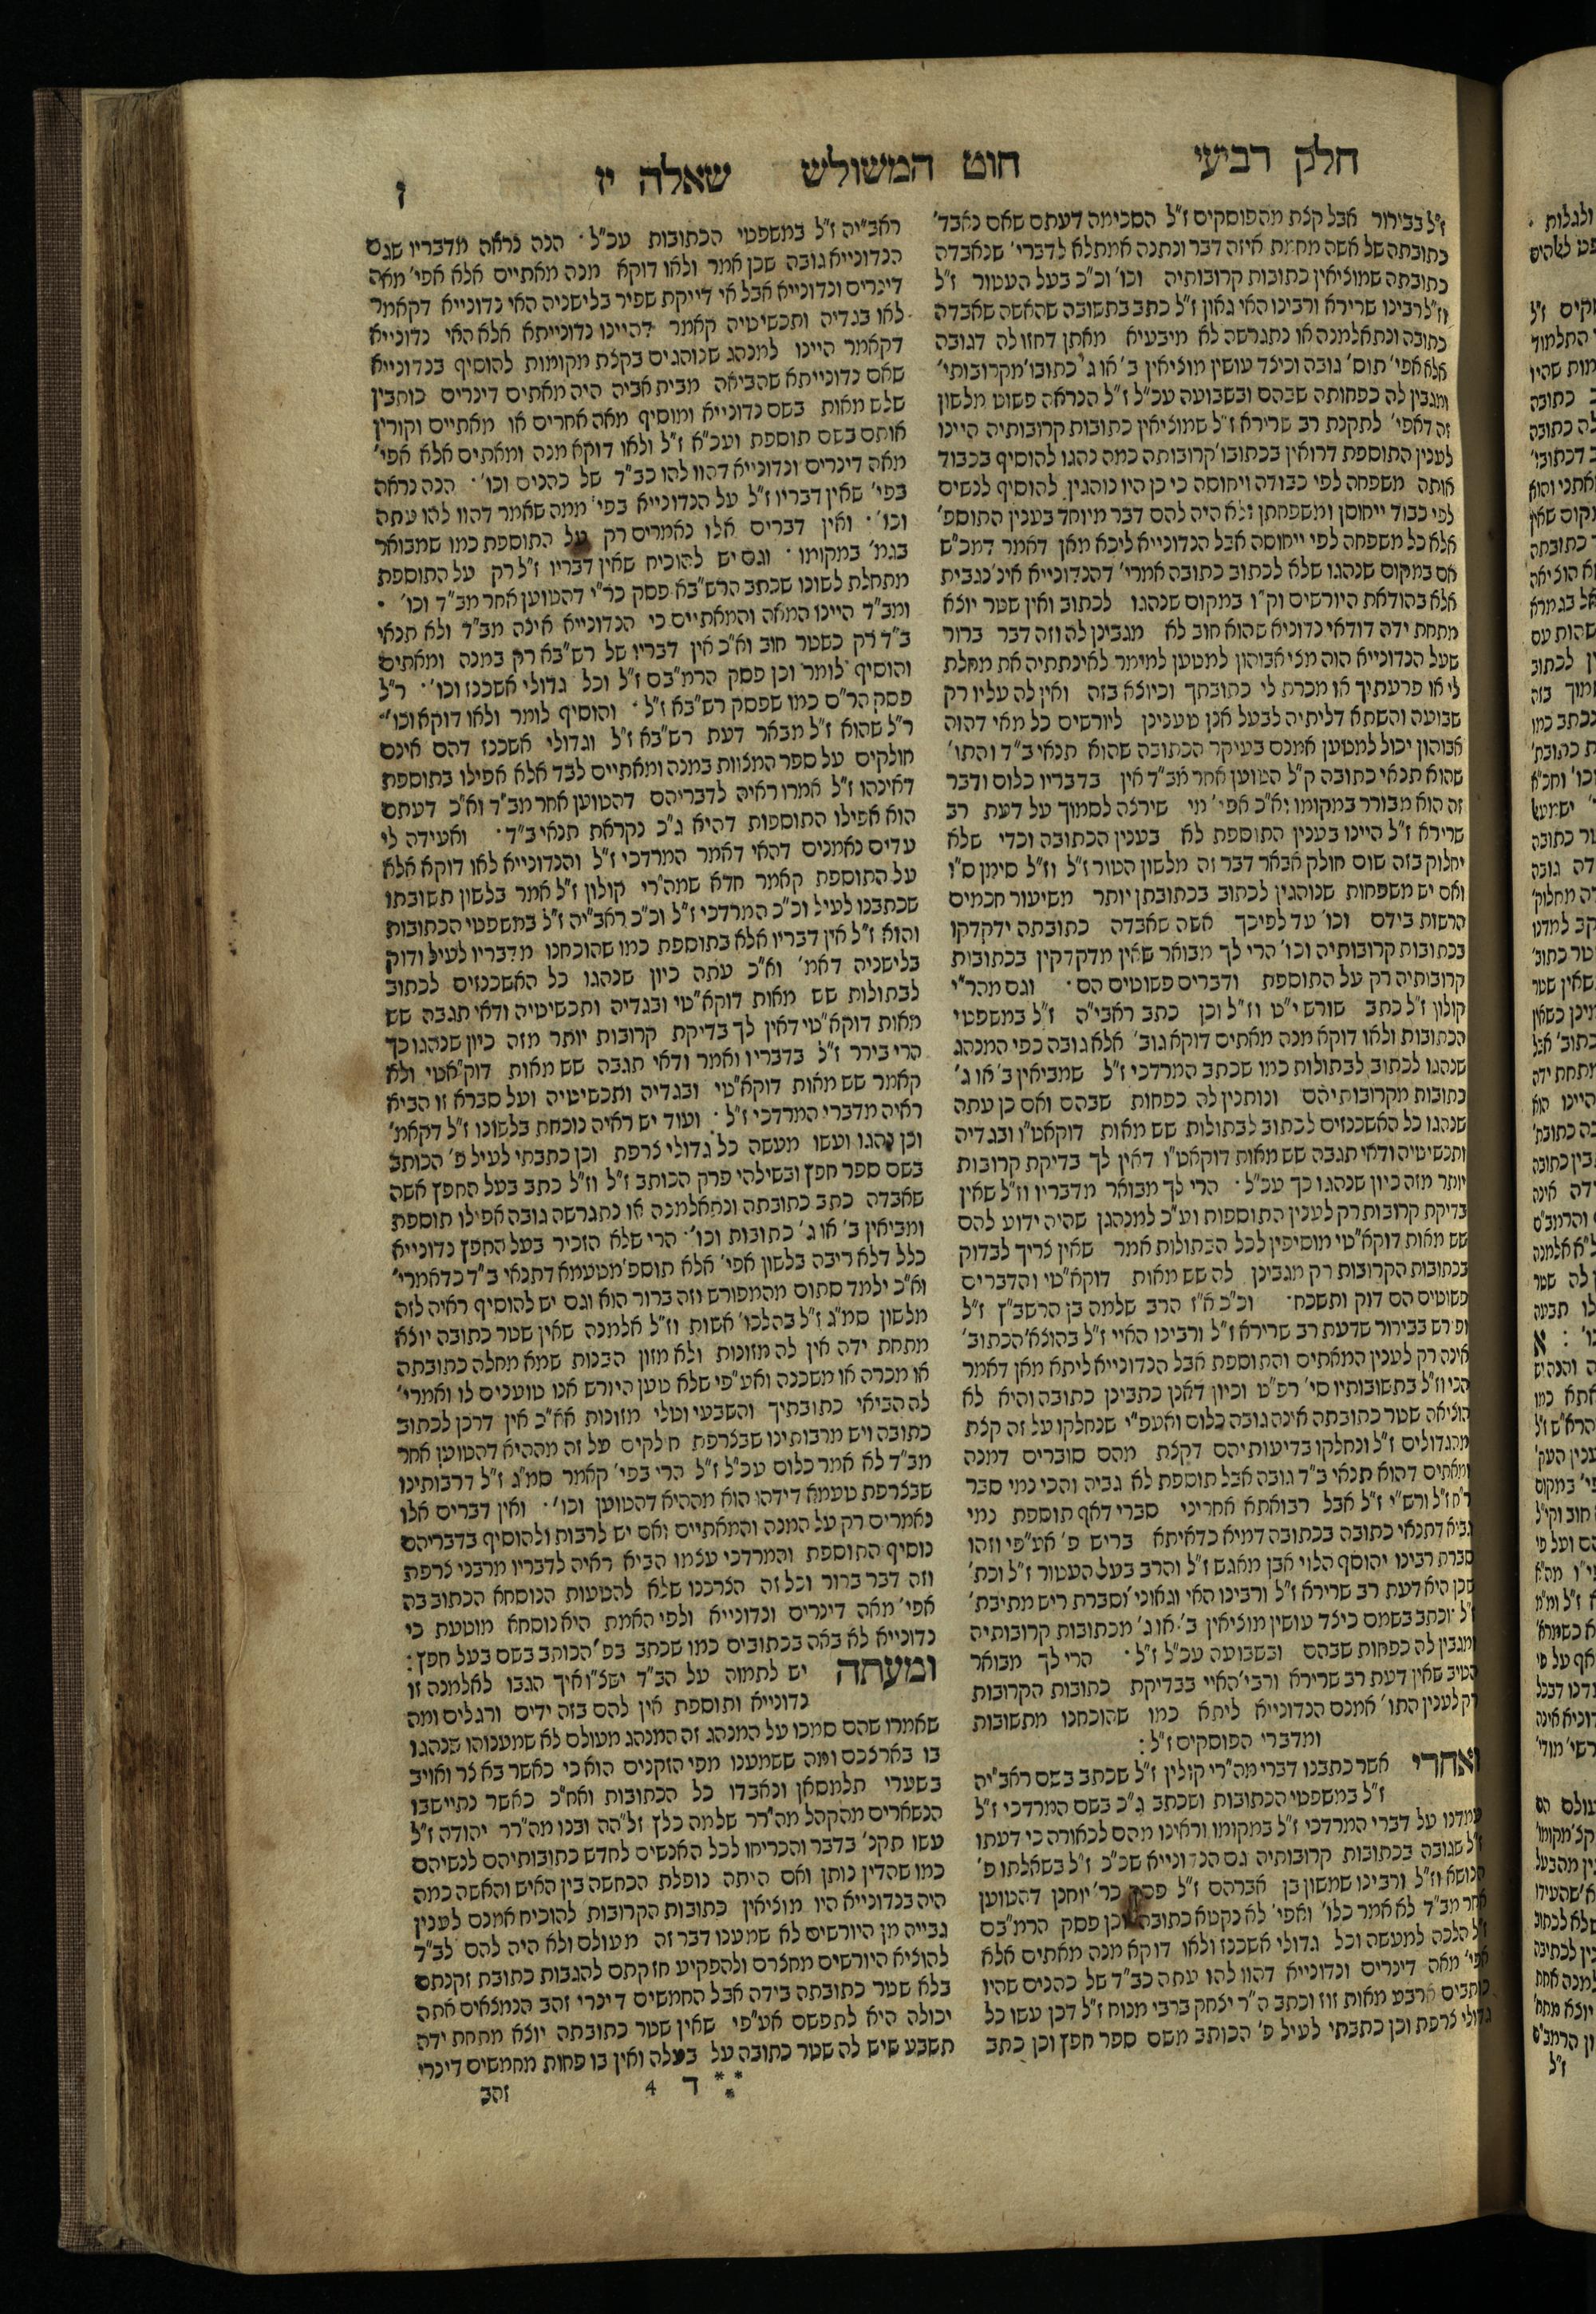 חלק רביעי חוט המשולש שאלה יז ז
ז"ל בבירור אבל קצת מהפוסקים ז"ל הסכימה דעתם שאם נאבד'
כתובתה של אשה מחמת איזה דבר ונתנה אמתלא לדברי' שנאבדה
כתובתה שמוציאין כתובות קרובותיה וכו' וכ"כ בעל העטור ז"ל
וז"ל רבינו שרירא ורבינו האי גאון ז"ל כתב בתשובה שהאשה שאבדה
כתובה ונתאלמנה או נתגרשה לא מיבעיא מאתן דחזו לה דגובה
אלא אפי' תוס' גובה וכיצד עושין מוציאין ב' או ג' כתובו' מקרובותי'
ומגבין לה כפחותה שבהם ובשבועה עכ"ל ז"ל הנראה פשוט מלשון
זה דאפי' לתקנת רב שרירא ז"ל שמוציאין כתובות קרובותיה היינו
לענין התוספת דרואין בכתובו' קרובותה כמה נהגו להוסיף בכבוד
אותה משפחה לפי כבודה ויחוסה כי כן היו נוהגין להוסיף לנשים
לפי כבוד ייחוסן ומשפחתן ולא היה להם דבר מיוחד בענין התוספ'
אלא כל משפחה לפי ייחוסה אבל הנדונייא ליכא מאן דאמר דמכ"ש
אם במקום שנהגו שלא לכתוב כתובה אמרי' דהנדונייא אינ' נגבית
אלא בהודאת היורשים וק"ו במקום שנהגו לכתוב ואין שטר יוצא
מתחת ידה דודאי נדוניא שהוא חוב לא מגבינן לה וזה דבר ברור
שעל הנדונייא הוה מצי אבוהון למטען למימר לאינתתיה את מחלת
לי או פרעתיך או מכרת לי כתובתך וכיוצא בזה ואין לה עליו רק
שבועה והשתא דליתיה לבעל אנן טענינן ליורשים כל מאי דהוה
אבוהון יכול למטען אמנם בעיקר הכתובה שהוא תנאי ב"ד והתו'
שהוא תנאי כתובה ק"ל הטוען אחר מב"ד אין בדבריו כלום ודבר
זה הוא מבורר במקומו וא"כ אפי' מי שירצה לסמוך על דעת רב
שרירא ז"ל היינו בענין התוספת לא בענין הכתובה וכדי שלא
יחלוק בזה שום חולק אבאר דבר זה מלשון הטור ז"ל וז"ל סימן ס"ו
ואם יש משפחות שנוהגין לכתוב בכתובתן יותר משיעור חכמים
הרשות בידם וכו' עד לפיכך אשה שאבדה כתובתה ידקדקו
בכתובות קרובותיה וכו' הרי לך מבואר שאין מדקדקין בכתובות
קרובותיה רק על התוספת ודברים פשוטים הם וגם מהר"י
קולון ז"ל כתב שורש י"ט וז"ל וכן כתב ראבי"ה ז"ל במשפטי
הכתובות ולאו דוקא מנה מאתים דוקא גוב' אלא גובה כפי המנהג
שנהגו לכתוב לבתולות כמו שכתב המרדכי ז"ל שמביאין ב' או ג'
כתובות מקרובותיהם ונותנין לה כפחות שבהם ואם כן עתה
שנהגו כל האשכנזים לכתוב לבתולות שש מאות דוקאט"ו ובגדיה
ותכשיטיה ודאי תגבה שש מאות דוקאט"ו דאין לך בדיקת קרובות
יותר מזה כיון שנהגו כך עכ"ל הרי לך מבואר מדבריו וז"ל שאין
בדיקת קרובות רק לענין התוספות וע"כ למנהגן שהיה ידוע להם
שש מאות דוקא"טי מוסיפין לכל הבתולות אמר שאין צריך לבדוק
בכתובות הקרובות רק מגבינן לה שש מאות דוקא"טי והדברים
פשוטים הם דוק ותשכח וכ"כ א"ז הרב שלמה בן הרשב"ץ ז"ל
ופירש בבירור שדעת רב שרירא ז"ל ורבינו האיי ז"ל בהוצא' הכתוב'
אינה רק לענין המאתים והתוספת אבל הנדונייא ליתא מאן דאמר
הכי וז"ל בתשובותיו סי' רפ"ט וכיון דאנן כתבינן כתובה והיא לא
הוציאה שטר כתובתה אינה גובה כלום ואעפ"י שנחלקו על זה קצת
מהגדולים ז"ל ונחלקו בדיעותיהם דקצת מהם סוברים דמנה
ומאתים דהוא תנאי ב"ד גובה אבל תוספת לא גביה והכי נמי סבר
ר"ח ז"ל ורש"י ז"ל אבל רבואתא אחריני סברי דאף תוספת נמי
גביא דתנאי כתובה בכתובה דמיא כדאיתא בריש פ' אע"פי וזהו
סברת רבינו יהוסף הלוי אבן מאגש ז"ל והרב בעל העטור ז"ל וכת'
שכן היא דעת רב שרירא ז"ל ורבינו האי וגאוני' וסברת ריש מתיבת'
ז"ל וכתב בשמם כיצד עושין מוציאין ב' או ג' מכתובות קרובותיה
ומגבין לה כפחות שבהם ובשבועה עכ"ל ז"ל הרי לך מבואר
הטיב שאין דעת רב שרירא ורבי' האיי בבדיקת כתובות הקרובות
רק לענין התו' אמנם הנדונייא ליתא כמו שהוכחנו מתשובות
ומדברי הפוסקים ז"ל:
ואחרי אשר כתבנו דברי מה"רי קולין ז"ל שכתב בשם ראבי"ה
ז"ל במשפטי הכתובות ושכתב ג"כ בשם המרדכי ז"ל
עמדנו על דברי המרדכי ז"ל במקומו וראינו מהם לכאורה כי דעתו
ז"ל שגובה בכתובות קרובותיה גם הנדונייא שכ"כ ז"ל בשאלתו פ'
הנושא וז"ל ורבינו שמשון בן אברהם ז"ל פסק כר' יוחנן דהטוען
אחר מב"ד לא אמר כלו' ואפי' לא נקטא כתובה וכן פסק הרמ"בם
ז"ל הלכה למעשה וכל גדולי אשכנז ולאו דוקא מנה מאתים אלא
אפי' מאה דינרים ונדונייא דהוו להו עתה כב"ד של כהנים שהיו
כותבים ארבע מאות זוז וכתב ה"ר יצחק ברבי מנוח ז"ל דכן עשו כל
גדולי צרפת וכן כתבתי לעיל פ' הכותב משם ספר חפץ וכן כתב
ראבי"ה ז"ל במשפטי הכתובות עכ"ל הנה נראה מדבריו שגם
הנדונייא גובה שכן אמר ולאו דוקא מנה מאתיים אלא אפי' מאה
דינרים ונדונייא אבל אי דייקת שפיר בלישניה האי נדונייא דקאמר
לאו בגדיה ותכשיטיה קאמר דהיינו נדונייתא אלא האי נדונייא
דקאמר היינו למנהג שנוהגים בקצת מקומות להוסיף בנדונייא
שאם נדונייתא שהביאה מבית אביה היה מאתים דינרים כותבין
שלש מאות בשם נדונייא ומוסיף מאה אחרים או מאתיים וקורין
אותם בשם תוספת ועכ"א ז"ל ולאו דוקא מנה ומאתים אלא אפי'
מאה דינרים ונדונייא דהוו להו כב"ד של כהנים וכו' הנה נראה
בפי' שאין דבריו ז"ל על הנדונייא בפי' ממה שאמר דהוו להו עתה
וכו' ואין דברים אלו נאמרים רק על התוספת כמו שמבואר
בגמ' במקומו וגם יש להוכיח שאין דבריו ז"ל רק על התוספת
מתחלת לשונו שכתב הרש"בא פסק כר"י דהטוען אחר מב"ד וכו'
ומב"ד היינו המאה והמאתיים כי הנדונייא אינה מב"ד ולא תנאי
ב"ד רק כשטר חוב וא"כ אין דבריו של רש"בא רק במנה ומאתים
והוסיף לומר וכן פסק הרמ"בם ז"ל וכל גדולי אשכנז וכו' ר"ל
פסק הר"ם כמו שפסק רש"בא ז"ל והוסיף לומר ולאו דוקא וכו'
ר"ל שהוא ז"ל מבאר דעת רש"בא ז"ל וגדולי אשכנז דהם אינם
חולקים על ספר המצות במנה ומאתיים לבד אלא אפילו בתוספת
דאינהו ז"ל אמרו ראיה לדבריהם דהטוען אחר מב"ד וא"כ דעתם
הוא אפילו התוספות דהיא ג"כ נקראת תנאי ב"ד ואעידה לי
עדים נאמנים דהאי דאמר המרדכי ז"ל והנדונייא לאו דוקא אלא
על התוספת קאמר חדא שמה"רי קולון ז"ל אמר בלשון תשובתו
שכתבנו לעיל וכ"כ המרדכי ז"ל וכ"כ ראבי"ה ז"ל במשפטי הכתובות
והוא ז"ל אין דבריו אלא בתוספת כמו שהוכחנו מדבריו לעיל ודוק
בלישניה דאמ' וא"כ עתה כיון שנהגו כל האשכנזים לכתוב
לבתולות שש מאות דוקא"טי ובגדיה ותכשיטיה ודאי תגבה שש
מאות דוקא"טי דאין לך בדיקת קרובות יותר מזה כיון שנהגו כך
הרי בירר ז"ל בדבריו ואמר ודאי תגבה שש מאות דוק"אטי ולא
קאמר שש מאות דוקא"טי ובגדיה ותכשיטיה ועל סברא זו הביא
ראיה מדברי המרדכי ז"ל ועוד יש ראיה נוכחת בלשונו ז"ל דקאמ'
וכן נהגו ועשו מעשה כל גדולי צרפת וכן כתבתי לעיל פ' הכותב
בשם ספר חפץ ובשילהי פרק הכותב ז"ל וז"ל כתב בעל החפץ אשה
שאבדה כתב כתובתה ונתאלמנה או נתגרשה גובה אפילו תוספת
ומביאין ב' או ג' כתובות וכו' הרי שלא הזכיר בעל החפץ נדונייא
כלל דלא ריבה בלשון אפי' אלא תוספ' מטעמא דתנאי ב"ד כדאמרי'
וא"כ ילמד סתום מהמפורש וזה ברור הוא וגם יש להוסיף ראיה לזה
מלשון סמ"ג ז"ל בהלכו' אשות וז"ל אלמנה שאין שטר כתובה יוצא
מתחת ידה אין לה מזונות ולא מזון הבנות שמא מחלה כתובתה
או מכרה או משכנה ואע"פי שלא טען היורש אנו טוענים לו ואמרי'
לה הביאי כתובתיך והשבעי וטלי מזונות אא"כ אין דרכן לכתוב
כתובה ויש מרבותינו שבצרפת חולקים על זה מההיא דהטוען אחר
מב"ד לא אמר כלום עכ"ל ז"ל הרי בפי' קאמר סמ"ג ז"ל דרבותינו
שבצרפת טעמא דידהו הוא מההיא דהטוען וכו' ואין דברים אלו
נאמרים רק על המנה והמאתיים ואם יש לרבות ולהוסיף בדבריהם
נוסיף התוספת והמרדכי עצמו הביא ראיה לדבריו מרבני צרפת
וזה דבר ברור וכל זה הצרכנו שלא להטעות הנוסחא הכתוב בה
אפי' מאה דינרים ונדונייא ולפי האמת היא נוסחא מוטעת כי
נדונייא לא באה בכתובים כמו שכתב בפ' הכותב בשם בעל חפץ:
ומעתה יש לתמוה על הב"ד ישצ"ו איך הגבו לאלמנה זו
נדונייא ותוספת אין להם בזה ידים ורגלים ומה
שאמרו שהם סמכו על המנהג זה המנהג מעולם לא שמענוהו שנהגו
בו בארצכם ומה ששמענו מפי הזקנים הוא כי כאשר בא צר ואויב
בשערי תלמסאן ונאבדו כל הכתובות ואח"כ כאשר נתיישבו
הנשארים מהקהל מה"רר שלמה כלץ זל"הה ובנו מה"רר יהודה ז"ל
עשו תקנ' בדבר והכריחו לכל האנשים לחדש כתובותיהם לנשיהם
כמו שהדין נותן ואם היתה נופלת הכחשה בין האיש והאשה כמה
היה בנדונייא היו מוציאין כתובות הקרובות להוכיח אמנם לענין
גבייה מן היורשים לא שמענו דבר זה מעולם ולא היה להם לב"ד
להוציא היורשים מחצרם ולהפקיע חזקתם להגבות כתובת זקנתם
בלא שטר כתובתה בידה אבל החמשים דינרי זהב הנמצאים אתה
יכולה היא לתפשם אע"פי שאין שטר כתובתה יוצא מתחת ידה
תשבע שיש לה שטר כתובה על בעלה ואין בו פחות מחמשים דינרי
*** ד 4 זהב